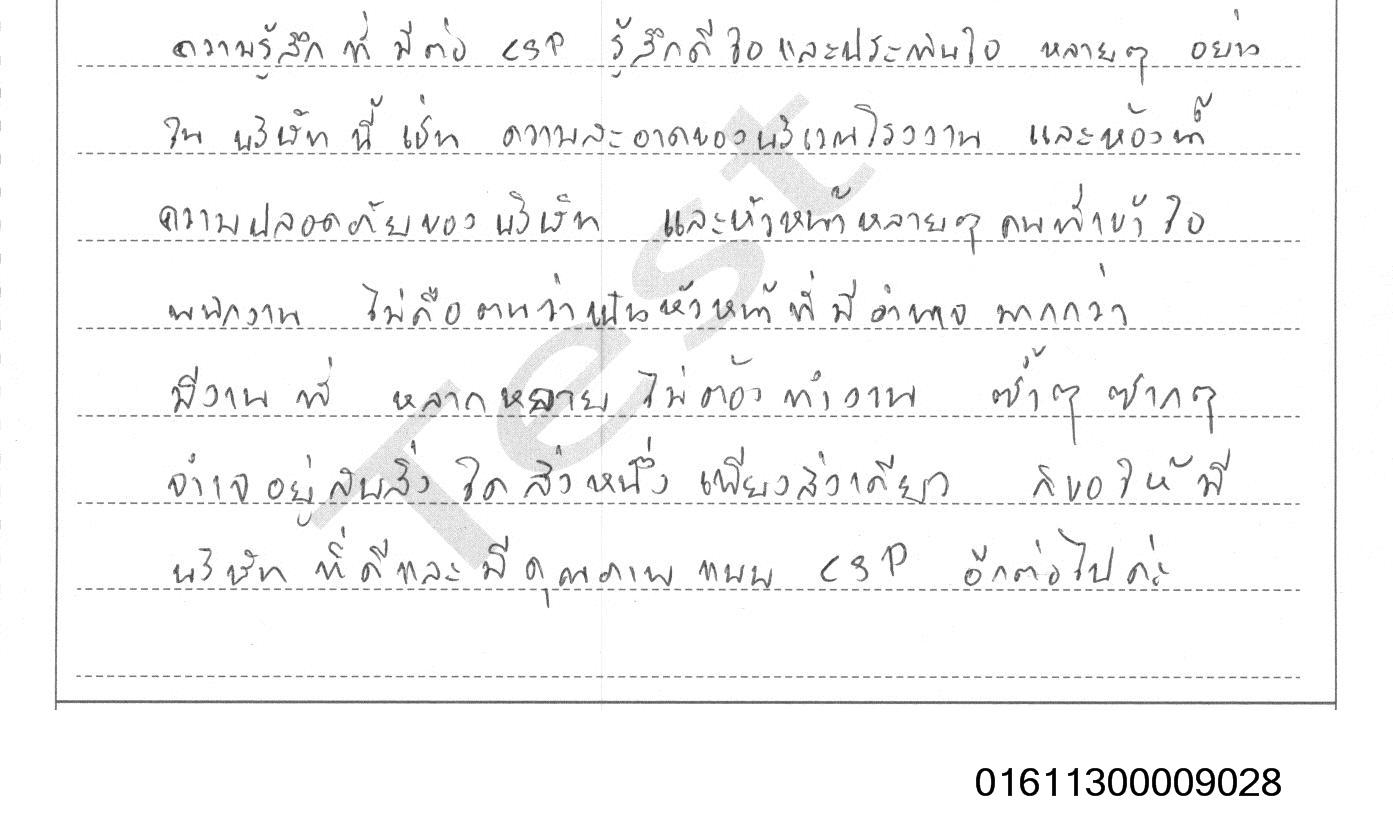 ความรู้สึก ที่ มีต่อ CSP รู้สึกดีใจและประทับใจ หลายๆ อย่าง
ใน บริษัท นี้ เช่น ความสะอาดของบริเวณโรงงาน และห้องน้ำ
ความปลอดภัยของ บริษัท และหัวหน้าหลายๆ คนที่เข้าใจ
พนักงาน ไม่ถือตนว่าเป็นหัวหน้าที่มีอำนาจ มากกว่า
มีงานที่ หลากหลาย ไม่ต้องทำงาน ซ้ำๆ ซากๆ
จำเจอยู่กับสิ่งใดสิ่งหนึ่ง เพียงสิ่งเดียว ก็ขอให้มี
บริษัท ที่ดีและมีคุณภาพ แบบ CSP อีกต่อไปค่ะ
Test
01611300009028